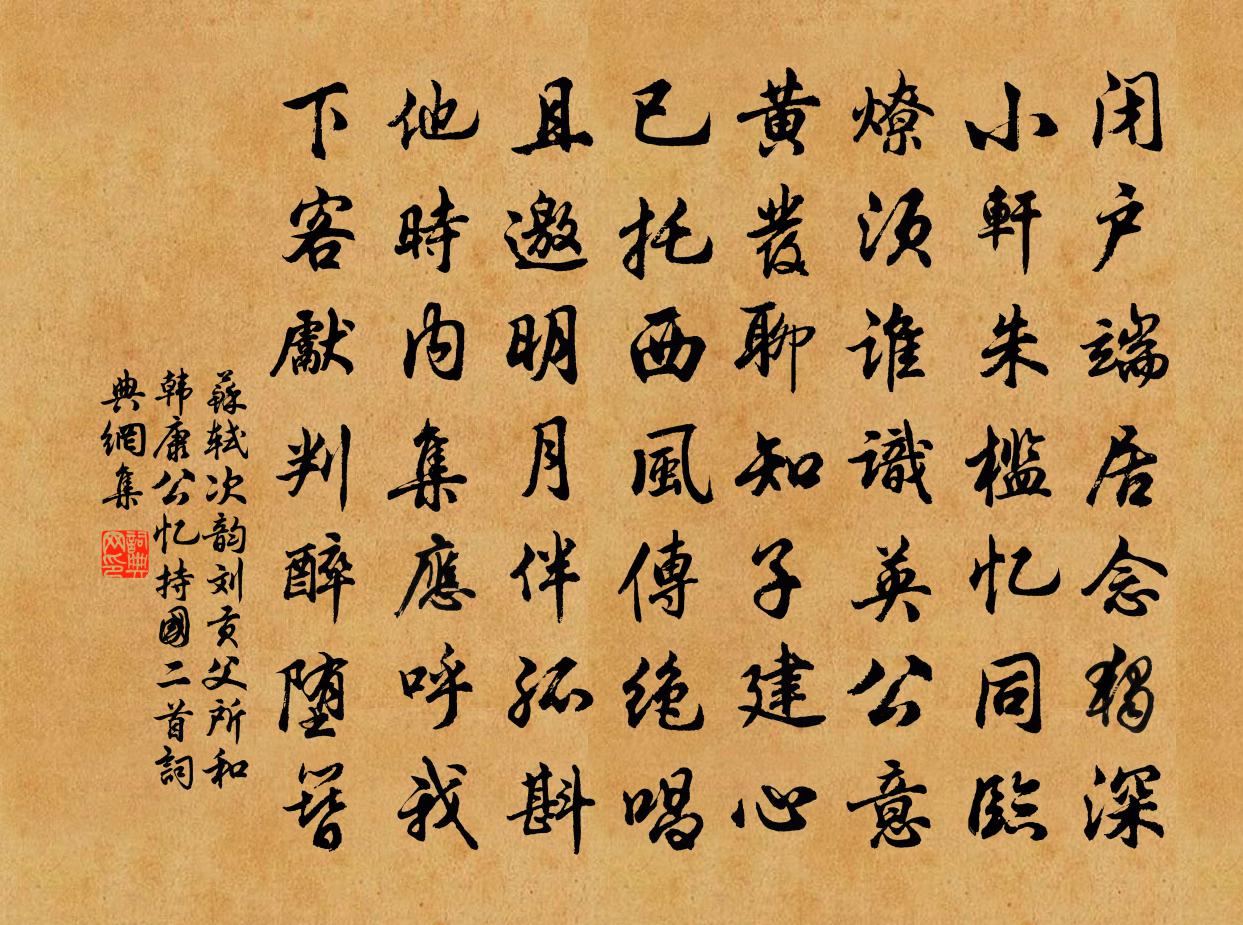 闭户端居念独深
小軒朱檻忆同臨
燎须谁識英公意
黄发聊知子建心
已托西風傳绝唱
且邀明月伴孤斟
他時内集應呼我
下客獻判醉堕簪
蘇轼次韵刘贡父所和
韩康公忆持國二首詞
典網集